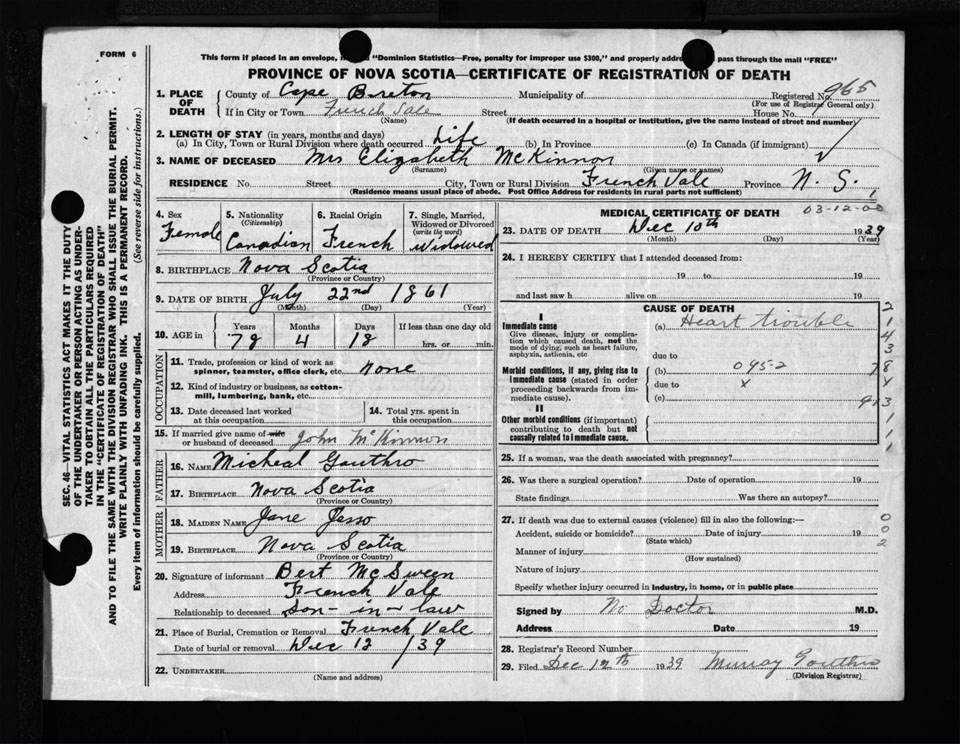 FORM 6
This form if placed in an envelope, "Dominion Statistics—Free, penalty for improper use $300," and properly pass through the mail "FREE"
PROVINCE OF NOVA SCOTIA—CERTIFICATE OF REGISTRATION OF DEATH
SEC. 46—VITAL STATISTICS ACT MAKES IT THE DUTY OF THE UNDERTAKER OR PERSON ACTING AS UNDERTAKER TO OBTAIN ALL THE PARTICULARS REQUIRED IN THE "CERTIFICATE OF REGISTRATION OF DEATH"
AND TO FILE THE SAME WITH THE DIVISION REGISTRAR WHO SHALL ISSUE THE BURIAL PERMIT.
WRITE PLAINLY WITH UNFADING INK. THIS IS A PERMANENT RECORD.
Every item of information should be carefully supplied. (See reverse side for instructions.)
1. PLACE OF DEATH County of Cape Breton Municipality of Registered No. 965
(For use of Registrar General only)
If in City or Town French Vale Street House No.
(Name) (If death occurred in a hospital or institution, give the name instead of street and number)
2. LENGTH OF STAY (in years, months and days)
(a) In City, Town or Rural Division where death occurred Life (b) In Province (c) In Canada (if immigrant)
3. NAME OF DECEASED Mrs Elizabeth McKinnon
(Surname) (Given name or names)
RESIDENCE No. Street City, Town or Rural Division French Vale Province N. S.
(Residence means usual place of abode. Post Office Address for residents in rural parts not sufficient)
4. Sex Female
5. Nationality (Citizenship) Canadian
6. Racial Origin French
7. Single, Married, Widowed or Divorced (write the word) Widowed
8. BIRTHPLACE Nova Scotia
(Province or Country)
9. DATE OF BIRTH July 22nd 1861
(Month) (Day) (Year)
10. AGE in Years 78 Months 4 Days 18 If less than one day old hrs. or min.
OCCUPATION
11. Trade, profession or kind of work as spinner, teamster, office clerk, etc. none
12. Kind of industry or business, as cotton-mill, lumbering, bank, etc.
13. Date deceased last worked at this occupation
14. Total yrs. spent in this occupation
15. If married give name of wife or husband of deceased John McKinnon
FATHER
16. NAME Micheal Gouthro
17. BIRTHPLACE Nova Scotia
(Province or Country)
MOTHER
18. MAIDEN NAME Jane Jesso
19. BIRTHPLACE Nova Scotia
(Province or Country)
20. Signature of informant Bert McSween
Address French Vale
Relationship to deceased Son-in-law
21. Place of Burial, Cremation or Removal French Vale
Date of burial or removal Dec 12/39
22. UNDERTAKER
(Name and address)
03-12-00
1
MEDICAL CERTIFICATE OF DEATH
23. DATE OF DEATH Dec 10th 1939
(Month) (Day) (Year)
24. I HEREBY CERTIFY that I attended deceased from:
19 to 19
and last saw h alive on 19
CAUSE OF DEATH
I
Immediate cause (a) Heart trouble
Give disease, injury or complication which caused death, not the mode of dying, such as heart failure, asphyxia, asthenia, etc
due to
Morbid conditions, if any, giving rise to immediate cause (stated in order proceeding backwards from immediate cause).
(b) 095-2
due to x
(c)
II
Other morbid conditions (if important) contributing to death but not causally related to immediate cause.
2
1
4
3
78
x
913
1
1
1
25. If a woman, was the death associated with pregnancy?
26. Was there a surgical operation? Date of operation 19
State findings Was there an autopsy?
27. If death was due to external causes (violence) fill in also the following:—
Accident, suicide or homicide? Date of injury 19
(State which)
Manner of injury
(How sustained)
Nature of injury
Specify whether injury occurred in industry, in home, or in public place
0
0
2
Signed by No Doctor M.D.
Address Date 19
28. Registrar's Record Number
29. Filed Dec 12th 1939 Murray Gouthro
(Division Registrar)